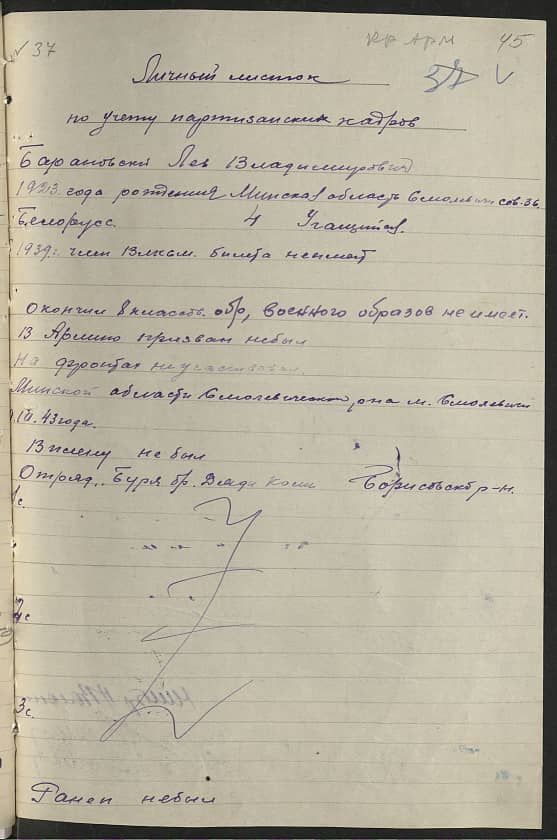 N 37
45
37 V
Личный листок
по учету партизанских кадров
Барановский Лев Владимирович
1923. года рождения Минская область Смолевич сов. 36.
Белорусс. 4 Учащийся.
1939г. член Влксм. билета неимеет
Окончил 8 классов. обр, военного образов не имеет.
В Армию призван небыл
На фронтах неучаствовал.
Минской области Смолевического р-на м. Смолевичи
43 года.
В плену не был
Отряд "Буря бр. Дяди Коли Борисовский р-н.
1 с.
2 с
3 с.
Ранен небыл